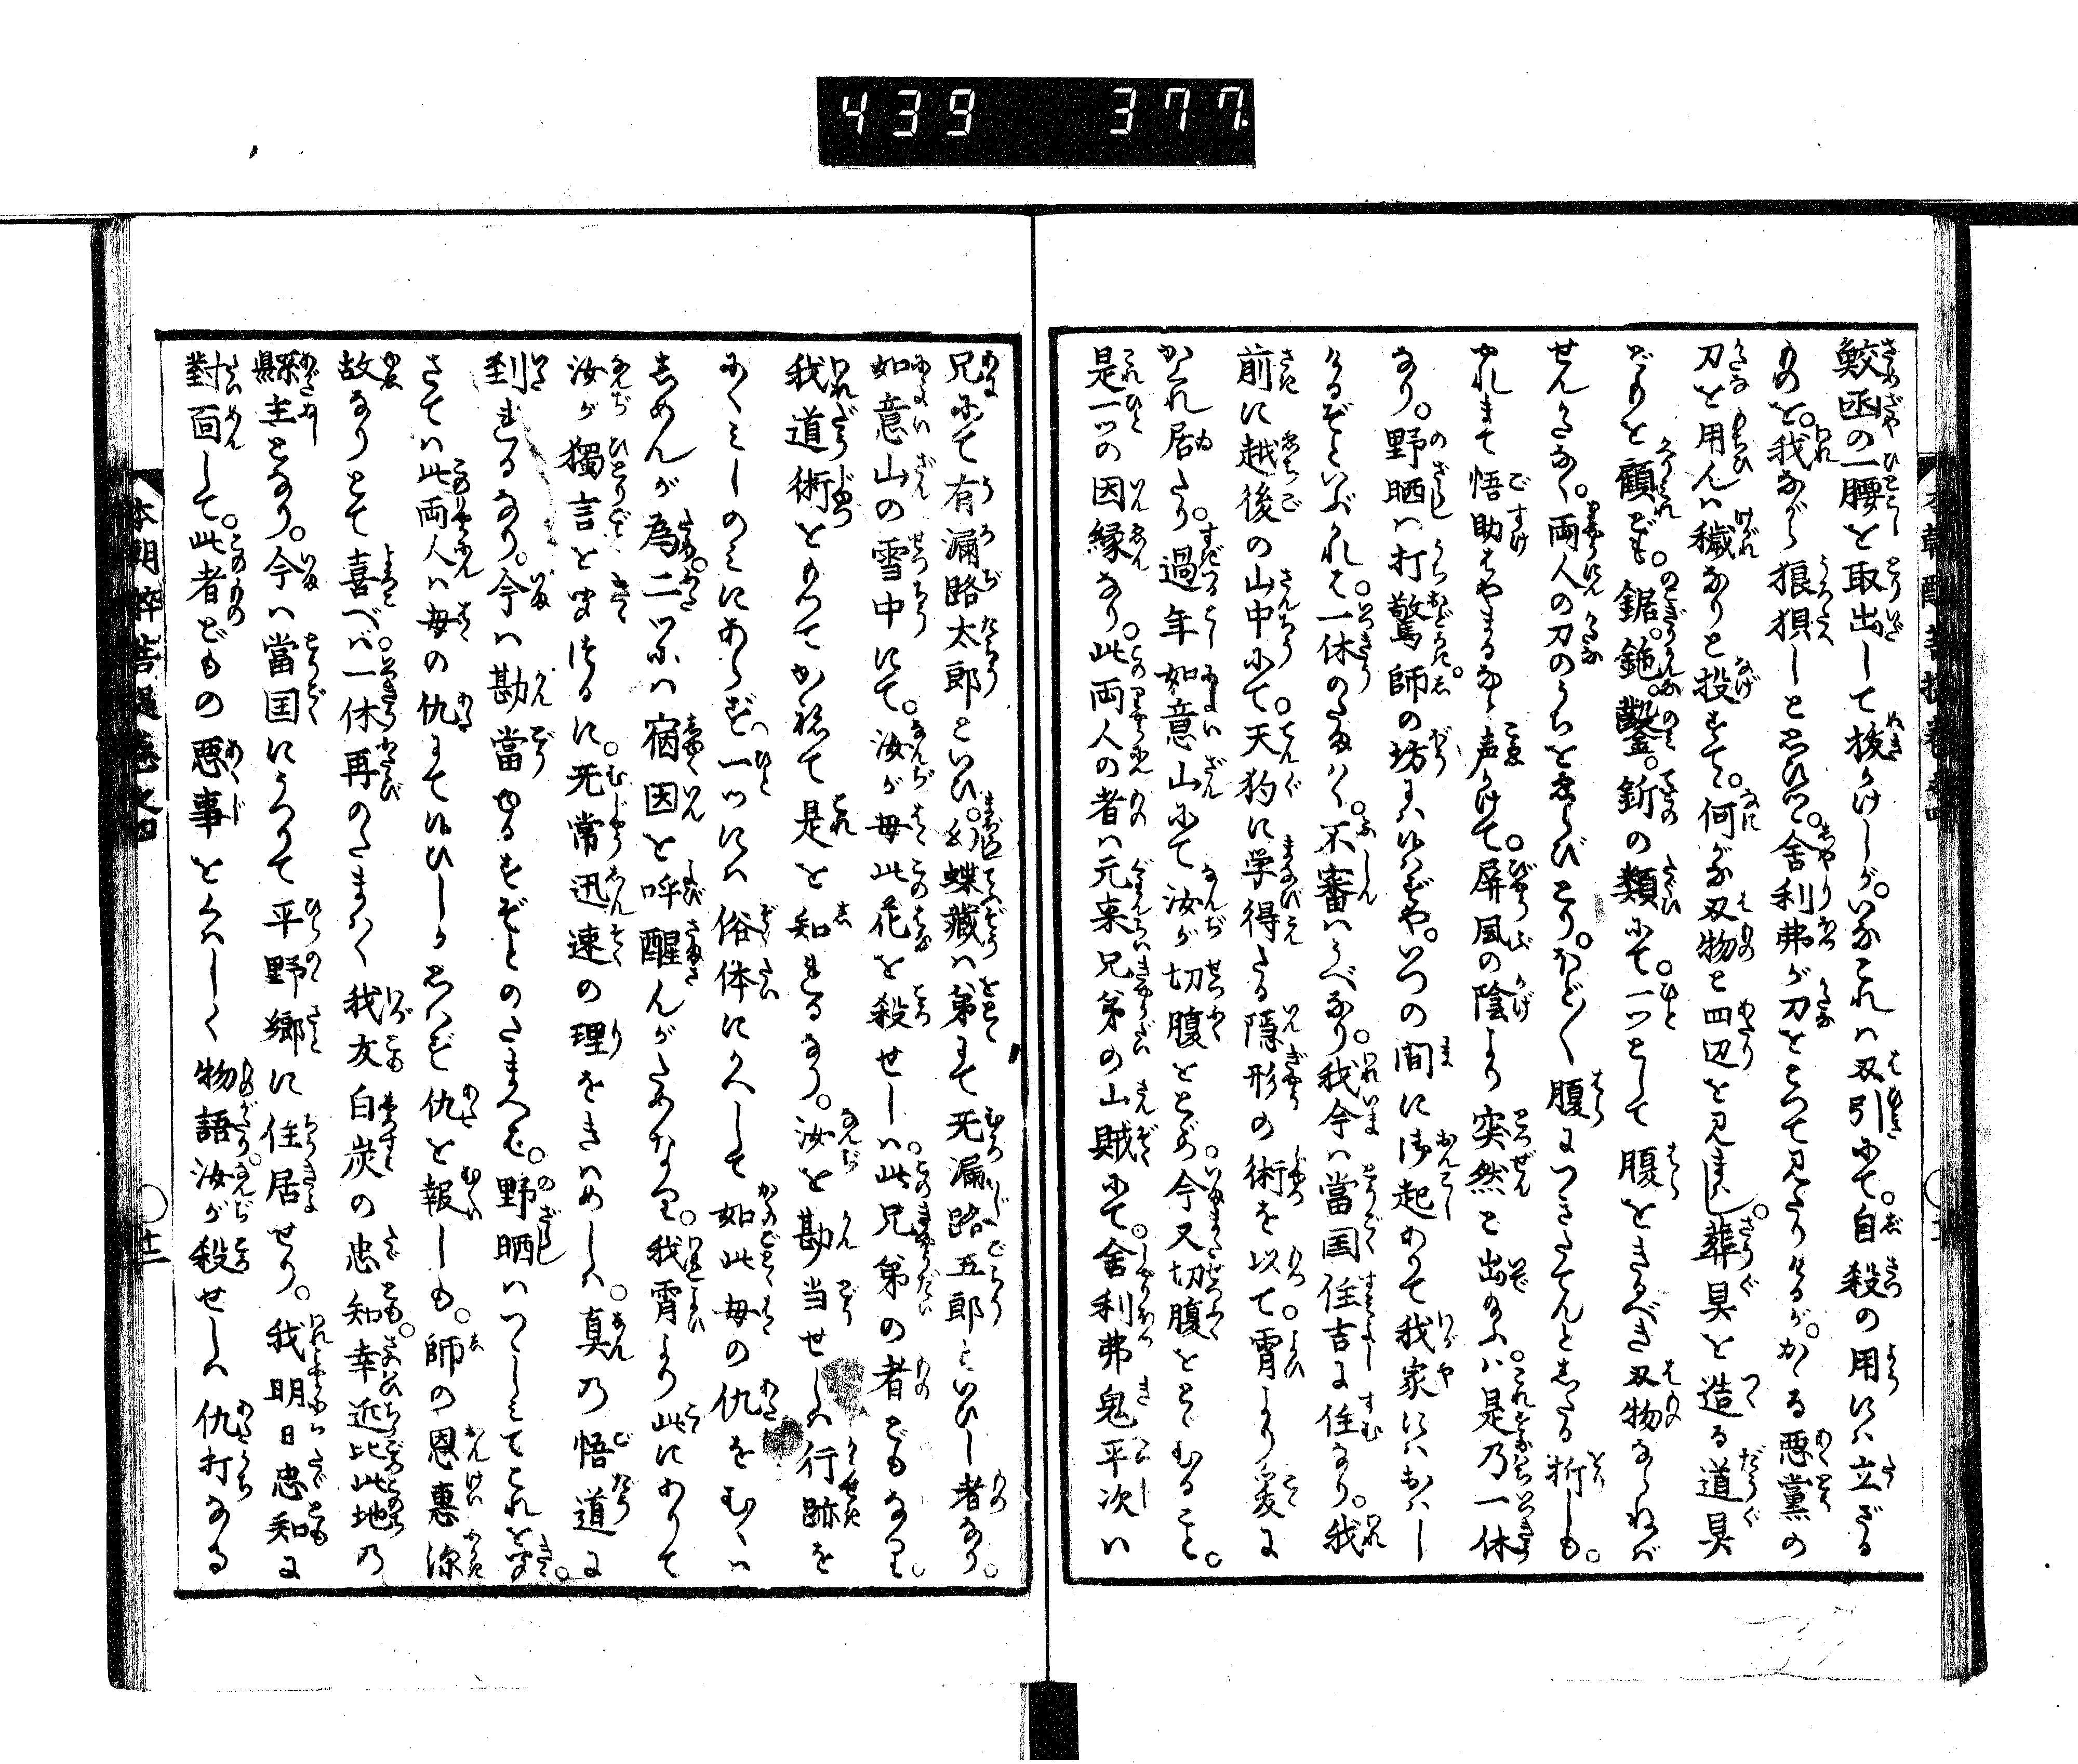 439 377.
鮫函の一腰を取出して抜かけしが。いなこれハ刄引にて。自殺の用にハ立ざる
ものを。我ながら狼狽しと思ひつゝ。舎利弗が刀をとつて見たりけるが。かゝる悪黨の
刀を用んハ穢なりと投すて。何がな刄物と四辺を見まハし。葬具を造る道具
ばこを顧ども。鋸。鉋。鑿。釿の類にて。一ツとして腹をきるべき刄物ならねバ
せんかたなく。両人の刀のうちを撰びとり。ほど〱腹につきたてんとしたる折しも。
やれまて悟助はやまるなと声かけて。屏風の陰より突然と出給ふハ。是乃一休
なり。野晒ハ打驚き。師の坊にハいつの間に御起ありて我家にハおハし
けるぞといぶかれば。一休のたまハく。不審ハうべなり。我今ハ當国住吉に住なり。我
前に越後の山中にて。天狗に学得たる隠形の術を以て。宵より爰に
かくれ居たり。過年如意山にて汝が切腹をとゞめ。今又切腹をとゞむること。
是一ツの因縁なり。此両人の者ハ元来兄弟の山賊にて。舎利弗鬼平次ハ
兄にて有漏路太郎といひ。幻蝶蔵ハ弟にて无漏路五郎といひし者なり。
如意山の雪中にて。汝が母此花を殺せしハ。此兄弟の者どもなり。
我道術をもつてかねて是を知れるなり。汝を勘当せしハ行跡を
にくみしのみにあらず。一ツにハ俗体にかへして如此母の仇をむくハ
しめんが為。二ツにハ宿因を呼醒んがためなり。我宵より此にありて
汝が獨言を聞つるに。无常迅速の理をきハめしハ。真の悟道に
到れるなり。今ハ勘當ゆるすぞとのたまへば。野晒ハつゝしみてこれを聞。
さてハ此両人ハ母の仇にて候ひしか。しらず仇を報しも。師の恩惠深
故なりとて喜べバ。一休再のたまハく我友白炭の忠知幸近比此地の
縣主となり。今ハ當国にうつりて平野郷に住居せり。我明日忠知に
對面して。此者どもの悪事をくハしく物語。汝が殺せしハ仇打なる
本朝酔菩提巻之四
十二